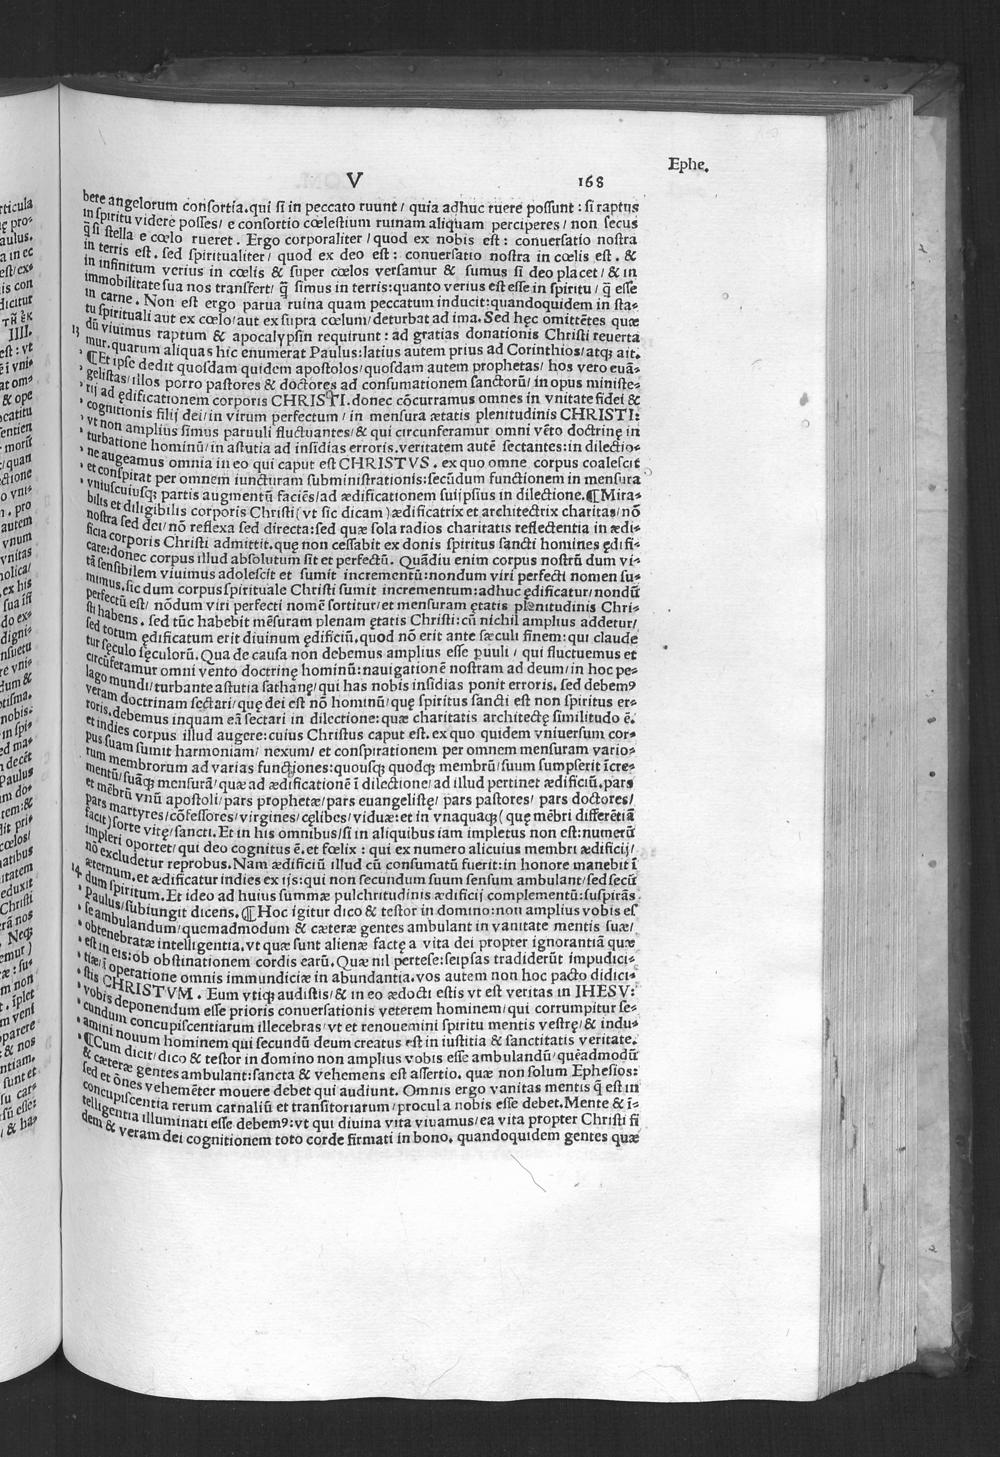 Ephe.
V 168
bere angelorum consortia.qui si in peccato ruunt/ quia adhuc ruere possunt : si raptus
in spiritu videre posses/ e consortio cœlestium ruinam aliquam perciperes/ non secus
q̃ si stella e cœlo rueret. Ergo corporaliter/ quod ex nobis est: conuersatio nostra
in terris est. sed spiritualiter/ quod ex deo est: conuersatio nostra in cœlis est. &
in infinitum verius in cœlis & super cœlos versamur & sumus si deo placet/ & in
immobilitate sua nos transfert/ q̃ simus in terris: quanto verius est esse in spiritu/ q̃ esse
in carne. Non est ergo parua ruina quam peccatum inducit:quandoquidem in sta-
tu spirituali aut ex cœlo/aut ex supra cœlum/deturbat ad ima. Sed hęc omittẽtes quæ
13 dũ viuimus raptum & apocalypsin requirunt: ad gratias donationis Christi reuerta
mur.quarum aliquas hic enumerat Paulus:latius autem prius ad Corinthios/atq; ait.
¶Et ipse dedit quosdam quidem apostolos/quosdam autem prophetas/ hos vero euã-
gelistas/illos porro pastores & doctores ad consumationem sanctorũ/in opus ministe-
rij ad ędificationem corporis CHRISTI.donec cõcurramus omnes in vnitate fidei &
cognitionis filij dei/in virum perfectum/in mensura ætatis plenitudinis CHRISTI:
vt non amplius simus paruuli fluctuantes/& qui circunferamur omni vẽto doctrinę in
turbatione hominũ/in astutia ad insidias erroris.veritatem autẽ sectantes:in dilectio-
ne augeamus omnia in eo qui caput est CHRISTVS. ex quo omne corpus coalescit
et conspirat per omnem iuncturam subministrationis:secũdum functionem in mensura
vniuscuiusq; partis augmentũ faciẽs/ad ædificationem suiipsius in dilectione.¶Mira-
bilis et diligibilis corporis Christi(vt sic dicam)ædificatrix et architectrix charitas/nõ
nostra sed dei/nõ reflexa sed directa:sed quæ sola radios charitatis reflectentia in ædi-
ficia corporis Christi admittit.quę non cessabit ex donis spiritus sancti homines ędifi-
care:donec corpus illud absolutum sit et perfectũ. Quãdiu enim corpus nostrũ dum vi-
tã sensibilem viuimus adolescit et sumit incrementũ:nondum viri perfecti nomen su-
mimus.sic dum corpus spirituale Christi sumit incrementum:adhuc ędificatur/nondũ
perfectũ est/ nõdum viri perfecti nomẽ sortitur/et mensuram ętatis plenitudinis Chri-
sti habens. sed tũc habebit mẽsuram plenam ętatis Christi:cũ nichil amplius addetur/
sed totum ędificatum erit diuinum ędificiũ.quod nõ erit ante sæculi finem:qui claude
tur sęculo sęculorũ.Qua de causa non debemus amplius esse puuli / qui fluctuemus et
circũferamur omni vento doctrinę hominũ:nauigationẽ nostram ad deum/in hoc pe-
lago mundi/turbante astutia sathanę/qui has nobis insidias ponit erroris. sed debemꝰ
veram doctrinam sectari/quę dei est nõ hominũ/quę spiritus sancti est non spiritus er-
roris.debemus inquam eã sectari in dilectione:quæ charitatis architectę similitudo ẽ.
et indies corpus illud augere:cuius Christus caput est.ex quo quidem vniuersum cor-
pus suam sumit harmoniam/ nexum/ et conspirationem per omnem mensuram vario-
rum membrorum ad varias functiones:quousq; quodq; membrũ/suum sumpserit ĩcre-
mentũ/suãq; mensurã/quæ ad ædificationẽ ĩ dilectione/ad illud pertinet ædificiũ.pars
et mẽbrũ vnũ apostoli/pars prophetæ/pars euangelistę/ pars pastores/ pars doctores/
pars martyres/cõfessores/virgines/cęlibes/viduæ:et in vnaquaq;(quę mẽbri differẽtiã
facit)sorte vitę/sancti.Et in his omnibus/si in aliquibus iam impletus non est:numerũ
impleri oportet/qui deo cognitus ẽ.et fœlix : qui ex numero alicuius membri ædificij/
nõ excludetur reprobus.Nam ædificiũ illud cũ consumatũ fuerit:in honore manebit ĩ
14 æternum.et ædificatur indies ex ijs:qui non secundum suum sensum ambulant/sed secũ
dum spiritum.Et ideo ad huius summæ pulchritudinis ædificij complementũ:suspirãs
Paulus/subiungit dicens.¶Hoc igitur dico & testor in domino:non amplius vobis es
se ambulandum/quemadmodum & cæteræ gentes ambulant in vanitate mentis suæ/
obtenebratæ intelligentia.vt quæ sunt alienæ factę a vita dei propter ignorantiã quæ
est in eis:ob obstinationem cordis earũ.Quæ nil pertesę:seipsas tradiderũt impudici-
tiæ/ĩ operatione omnis immundiciæ in abundantia.vos autem non hoc pacto didici-
stis CHRISTVM. Eum vtiq; audistis/& in eo ædocti estis vt est veritas in IHESV:
vobis deponendum esse prioris conuersationis veterem hominem/qui corrumpitur se-
cundum concupiscentiarum illecebras/vt et renouemini spiritu mentis vestrę/& indu-
amini nouum hominem qui secundũ deum creatus est in iustitia & sanctitatis veritate.
¶Cum dicit/dico & testor in domino non amplius vobis esse ambulandũ/quẽadmodũ
& cæteræ gentes ambulant:sancta & vehemens est assertio. quæ non solum Ephesios:
sed et õnes vehemẽter mouere debet qui audiunt. Omnis ergo vanitas mentis q̃ est in
concupiscentia rerum carnaliũ et transitoriarum/procul a nobis esse debet.Mente & ĩ-
telligentia illuminati esse debemꝰ:vt qui diuina vita viuamus/ea vita propter Christi fi
dem & veram dei cognitionem toto corde firmati in bono. quandoquidem gentes quæ